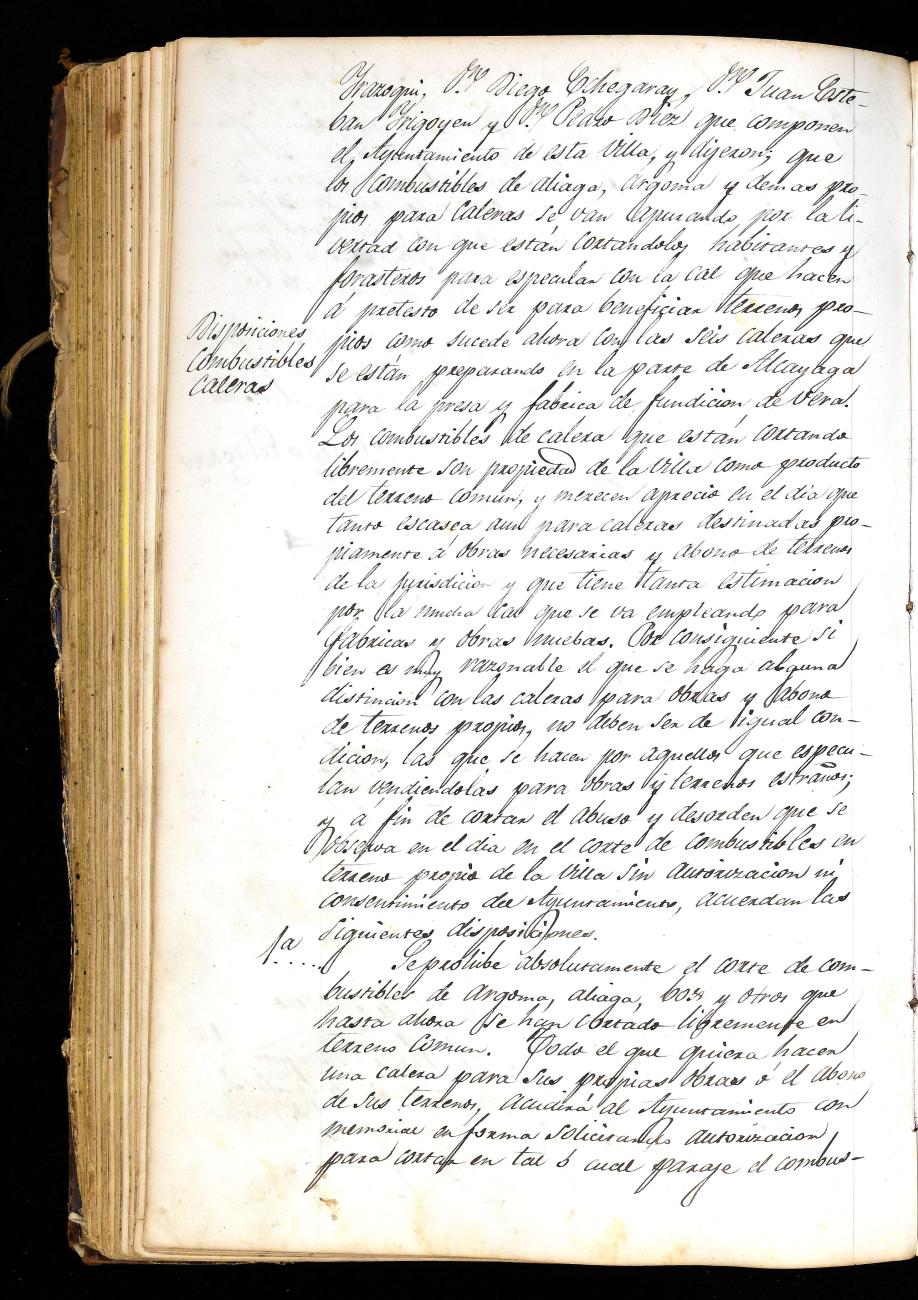 Yrazoqui, Dn. Diego Echegaray, Dn. Juan Este-
ban Yrigoyen y Dn. Pedro Diez que componen
el, Ayuntamiento de esta Villa, y dijeron; que
los combustibles de aliaga, argoma y demas pro-
pios para Caleras se van apurando por la li-
vertad con que están cortandolos habitantes y
forasteros para especular con la cal que hacen
á pretesto de ser para beneficiar terrenos pro-
Disposiciones
Combustibles
Caleras
pios como sucede ahora con las seis caleras que
se están preparando en la parte de Alcayaga
para la presa y fábrica de fundicion de Vera.
Los combustibles de calera que están cortando
libremente son propiedad de la Villa como producto
del terreno comun, y merecen aprecio en el dia que
tanto escasea aun para caleras destinadas pro-
piamente á obras necesarias y abono de terrenos
de la jurisdicion y que tiene tanta estimacion
por la mucha cal que se va empleando para
fábricas y obras nuebas. Por consiguiente si
bien es muy razonable el que se haga alguna
distincion con las caleras para obras y abono
de terrenos propios, no deben ser de igual con-
dicion, las que se hacen por aquellos que especu-
lan vendiendolas para obras y terrenos estraños;
y á fin de cortar el abuso y desorden que se
observa en el dia en el corte de combustibles en
terreno propio de la Villa sin autorizacion ni
consentimiento del Ayuntamiento, acuerdan las
siguientes disposiciones.
1a....
Se prohibe absolutamente el corte de com-
bustibles de argoma, aliaga, boj y otros que
hasta ahora se han cortado libremente en
terreno comun. Todo el que quiera hacer
una calera para sus propias obras ó el abono
de sus terrenos, acudirá al Ayuntamiento con
memorial en forma solicitando autorizacion
para cortar en tal ó cual paraje el combus-